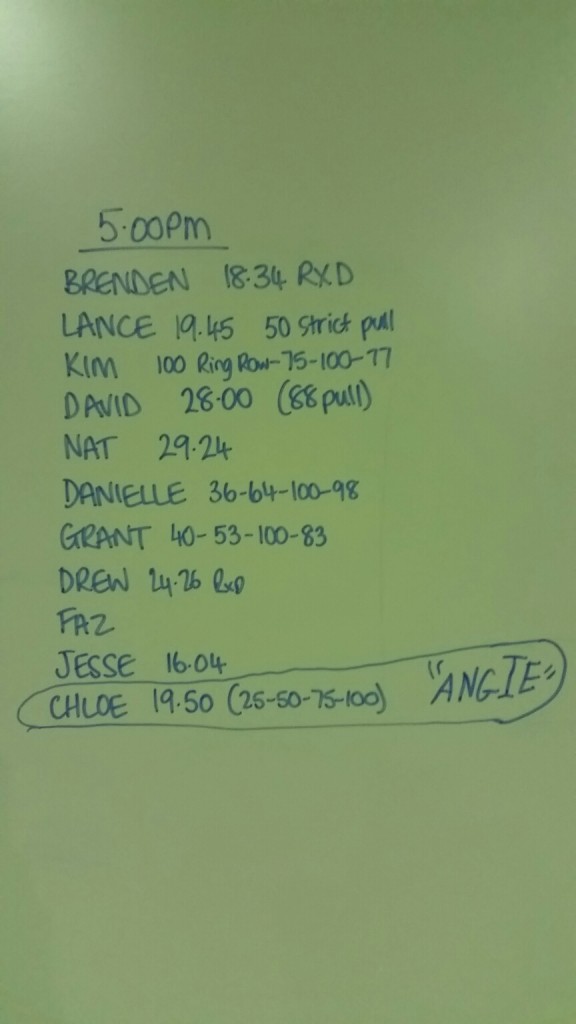 5.00pm
BRENDEN 18.34 RXD
LANCE 19.45 50 Strict pull
KIM 100 Ring Row-75-100-77
DAVID 28.00 (88 pull)
NAT 29.24
DANIELLE 36-64-100-98
GRANT 40-53-100-83
DREW 24.26 RxD
FAZ
JESSE 16.04
CHLOE 19.50 (25-50-75-100) "ANGIE"